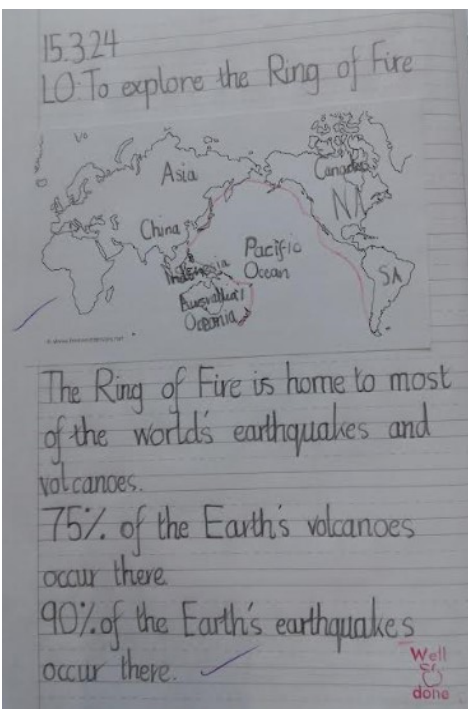 15.3.24
LO: To explore the Ring of Fire
Asia
Canada
NA
China
Pacific
Ocean
Indonesia
SA
Australia/
Oceania
The Ring of Fire is home to most
of the world's earthquakes and
volcanoes.
75% of the Earth's volcanoes
occur there
90% of the Earth's earthquakes
occur there.
Well
done